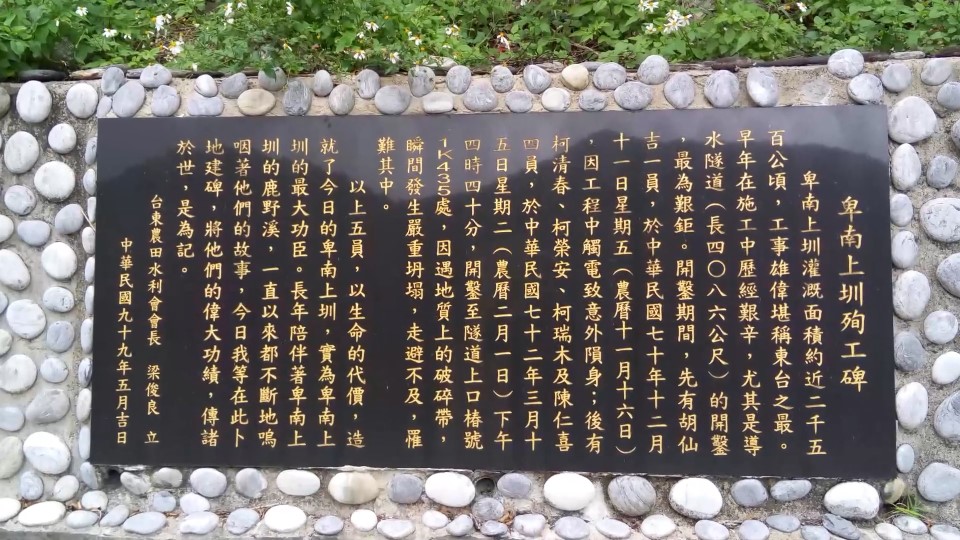 卑南上圳殉工碑
卑南上圳灌溉面積約近二千五
百公頃，工事雄偉堪稱東台之最。
早年在施工中歷經艱辛，尤其是導
水隧道（長四〇八六公尺）的開鑿
，最為艱鉅。開鑿期間，先有胡仙
吉一員，於中華民國七十年十二月
十一日星期五（農曆十一月十六日）
，因工程中觸電致意外隕身；後有
柯清春、柯榮安、柯瑞木及陳仁喜
四員，於中華民國七十二年三月十
五日星期二（農曆二月一日）下午
四時四十分，開鑿至隧道上口樁號
1K435處，因遇地質上的破碎帶，
瞬間發生嚴重坍塌，走避不及，罹
難其中。
以上五員，以生命的代價，造
就了今日的卑南上圳，實為卑南上
圳的最大功臣。長年陪伴著卑南上
圳的鹿野溪，一直以來都不斷地嗚
咽著他們的故事，今日我等在此卜
地建碑，將他們的偉大功績，傳諸
於世，是為記。
台東農田水利會會長 梁俊良 立
中華民國九十九年五月吉日